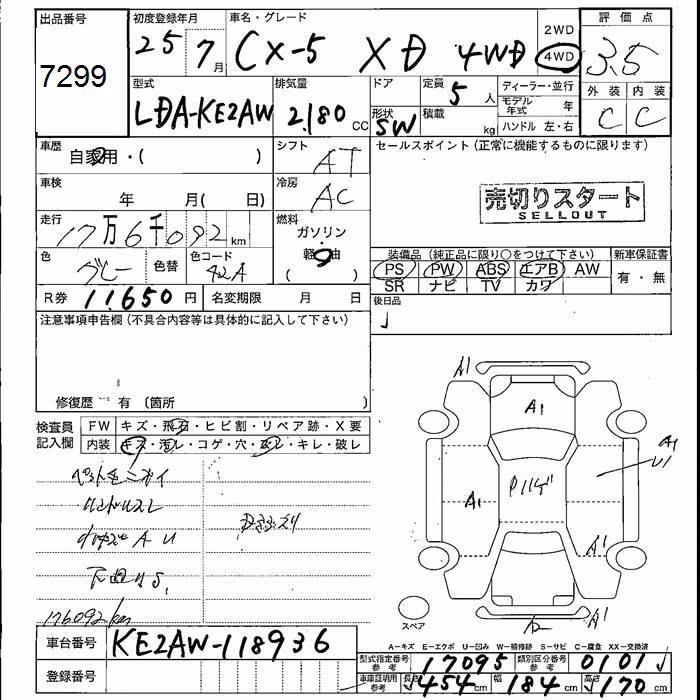 出品番号 初度登録年月 車名・グレード 2WD 評価点
7299 25年 7月 CX-5 XD 4WD 4WD 3.5
型式 排気量 ドア 定員 5人 ディーラー・並行 外装 内装
LDA-KE2AW 2,180cc 形状 SW 積載 kg モデル年式 年 C C
ハンドル 左・右
車歴 自家用・( ) シフト AT セールスポイント(正常に機能するものに限ります)
車検 年 月( 日) 冷房 AC 売切りスタート
SELLOUT
走行 17万6千092km 燃料 ガソリン
軽油
( )
色 グレー 色替 色コード 42A
装備品(純正品に限り○をつけて下さい) 新車保証書
PS PW ABS エアB AW 有・無
SR ナビ TV カワ
R券 11,650円 名変期限 月 日 後日品
注意事項申告欄(不具合内容等は具体的に記入して下さい)
修復歴 有 〔箇所 〕
検査員記入欄 FW キズ・飛石・ヒビ割・リペア跡・X要
内装 キズ・汚レ・コゲ・穴・凹レ・キレ・破レ
176092km
A1
A1
A1
A1
A1
A1
スペア
車台番号 KE2AW-118936
A-キズ E-エクボ U-凹み W-補修跡 S-サビ C-腐食 XX-交換済
登録番号
型式指定番号 参考 17095 類別区分番号 参考 0101
車庫証明用 参考 長さ 454cm 幅 184cm 高さ 170cm